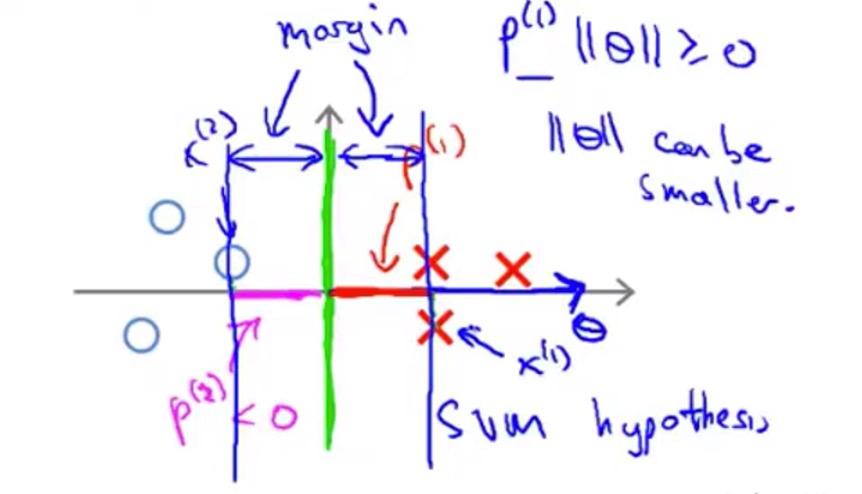 margin
p^(1) ||θ|| ≥ 0
x^(2)
p^(1)
||θ|| can be
smaller.
θ
x^(1)
p^(2) < 0
SVM hypothesis